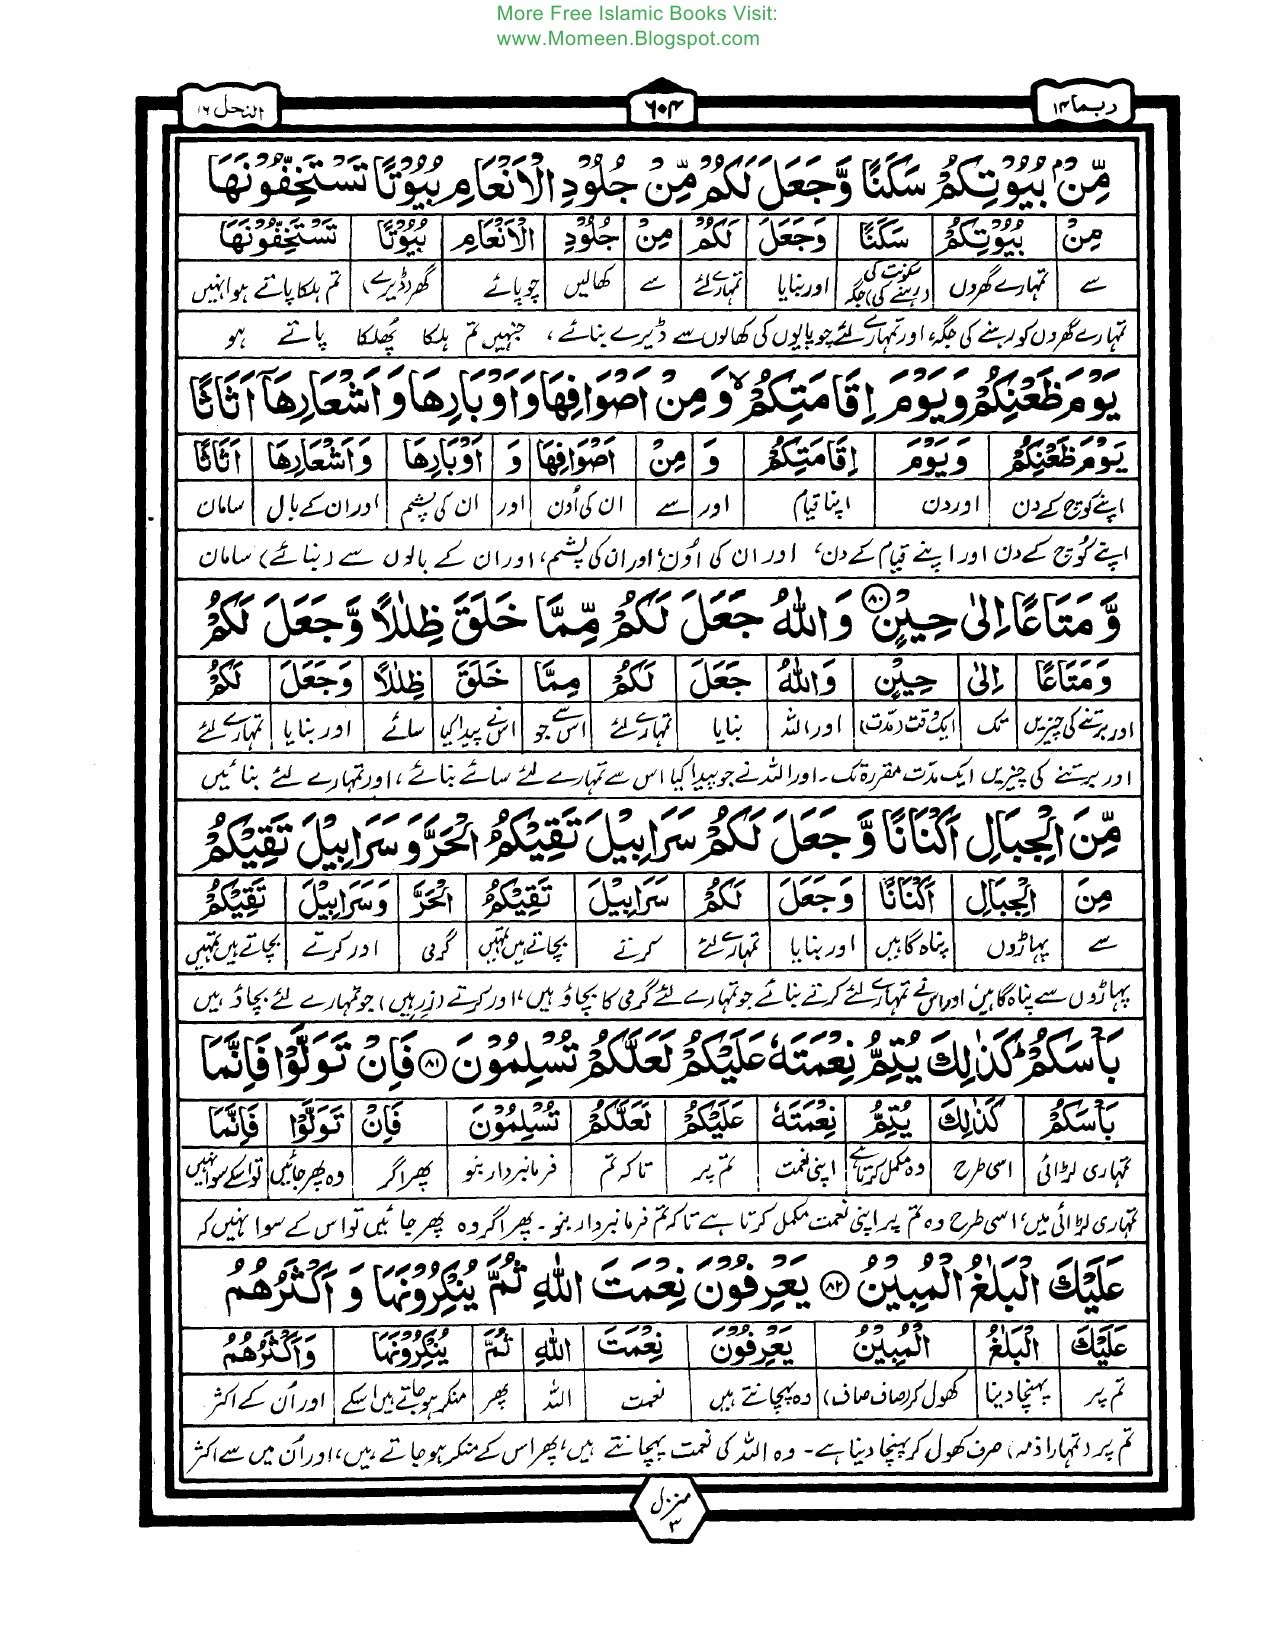 More Free Islamic Books Visit:
www.Momeen.Blogspot.com
ربما ۱۴
۶۰۴
النحل ۱۶
مِّنْۢ بُيُوْتِكُمْ سَكَنًا وَّجَعَلَ لَكُمْ مِّنْ جُلُوْدِ الْاَنْعَامِ بُيُوْتًا تَسْتَخِفُّوْنَهَا
مِنْ بُيُوْتِكُمْ سَكَنًا وَجَعَلَ لَكُمْ مِنْ جُلُوْدِ الْاَنْعَامِ بُيُوْتًا تَسْتَخِفُّوْنَهَا
سے تمہارے گھروں سکونت کی (رہنے کی) جگہ اور بنایا تمہارے لئے سے کھالیں چوپائے گھر (ڈیرے) تم ہلکا پاتے ہو انہیں
تمہارے گھروں کو رہنے کی جگہ، اور تمہارے لئے چوپایوں کی کھالوں سے ڈیرے بنائے، جنہیں تم ہلکا پُھلکا پاتے ہو
يَوْمَ ظَعْنِكُمْ وَيَوْمَ اِقَامَتِكُمْ ۙ وَمِنْ اَصْوَافِهَا وَاَوْبَارِهَا وَاَشْعَارِهَآ اَثَاثًا
يَوْمَ ظَعْنِكُمْ وَيَوْمَ اِقَامَتِكُمْ وَ مِنْ اَصْوَافِهَا وَ اَوْبَارِهَا وَاَشْعَارِهَا اَثَاثًا
اپنے کوچ کے دن اور دن اپنا قیام اور سے ان کی اُون اور ان کی پشم اور ان کے بال سامان
اپنے کُوچ کے دن اور اپنے قیام کے دن، اور ان کی اُون، اور ان کی پشم، اور ان کے بالوں سے (بنائے) سامان
وَّمَتَاعًا اِلٰى حِيْنٍ ۸۰ وَاللّٰهُ جَعَلَ لَكُمْ مِّمَّا خَلَقَ ظِلٰلًا وَّجَعَلَ لَكُمْ
وَمَتَاعًا اِلٰى حِيْنٍ وَاللّٰهُ جَعَلَ لَكُمْ مِمَّا خَلَقَ ظِلٰلًا وَجَعَلَ لَكُمْ
اور برتنے کی چیزیں تک ایک وقت (مدت) اور اللہ بنایا تمہارے لئے اس سے جو اس نے پیدا کیا سائے اور بنایا تمہارے لئے
اور برتنے کی چیزیں ایک مدّت مقررہ تک۔ اور اللہ نے جو پیدا کیا اس سے تمہارے لئے سائے بنائے، اور تمہارے لئے بنائیں
مِّنَ الْجِبَالِ اَكْنَانًا وَّجَعَلَ لَكُمْ سَرَابِيْلَ تَقِيْكُمُ الْحَرَّ وَسَرَابِيْلَ تَقِيْكُمْ
مِنَ الْجِبَالِ اَكْنَانًا وَجَعَلَ لَكُمْ سَرَابِيْلَ تَقِيْكُمُ الْحَرَّ وَسَرَابِيْلَ تَقِيْكُمْ
سے پہاڑوں پناہ گاہیں اور بنایا تمہارے لئے کرتے بچاتے ہیں تمہیں گرمی اور کرتے بچاتے ہیں تمہیں
پہاڑوں سے پناہ گاہیں، اور اس نے تمہارے لئے کرتے بنائے جو تمہارے لئے گرمی کا بچاؤ ہیں، اور کرتے (زرہیں) جو تمہارے لئے بچاؤ ہیں
بَاْسَكُمْ ؕ كَذٰلِكَ يُتِمُّ نِعْمَتَهٗ عَلَيْكُمْ لَعَلَّكُمْ تُسْلِمُوْنَ ۸۱ فَاِنْ تَوَلَّوْا فَاِنَّمَا
بَاْسَكُمْ كَذٰلِكَ يُتِمُّ نِعْمَتَهٗ عَلَيْكُمْ لَعَلَّكُمْ تُسْلِمُوْنَ فَاِنْ تَوَلَّوْا فَاِنَّمَا
تمہاری لڑائی اسی طرح وہ مکمل کرتا ہے اپنی نعمت تم پر تاکہ تم فرمانبردار بنو پھر اگر وہ پھر جائیں تو اسکے سوا نہیں
تمہاری لڑائی میں، اسی طرح وہ تم پر اپنی نعمت مکمل کرتا ہے تاکہ تم فرمانبردار بنو۔ پھر اگر وہ پھر جائیں تو اس کے سوا نہیں کہ
عَلَيْكَ الْبَلٰغُ الْمُبِيْنُ ۸۲ يَعْرِفُوْنَ نِعْمَتَ اللّٰهِ ثُمَّ يُنْكِرُوْنَهَا وَ اَكْثَرُهُمُ
عَلَيْكَ الْبَلٰغُ الْمُبِيْنُ يَعْرِفُوْنَ نِعْمَتَ اللّٰهِ ثُمَّ يُنْكِرُوْنَهَا وَاَكْثَرُهُمُ
تم پر پہنچا دینا کھول کر (صاف صاف) وہ پہچانتے ہیں نعمت اللہ پھر منکر ہو جاتے ہیں اسکے اور اُن کے اکثر
تم پر (تمہارا ذمہ) صرف کھول کر پہنچا دینا ہے۔ وہ اللہ کی نعمت پہچانتے ہیں، پھر اس کے منکر ہو جاتے ہیں، اور اُن میں سے اکثر
منزل ۳